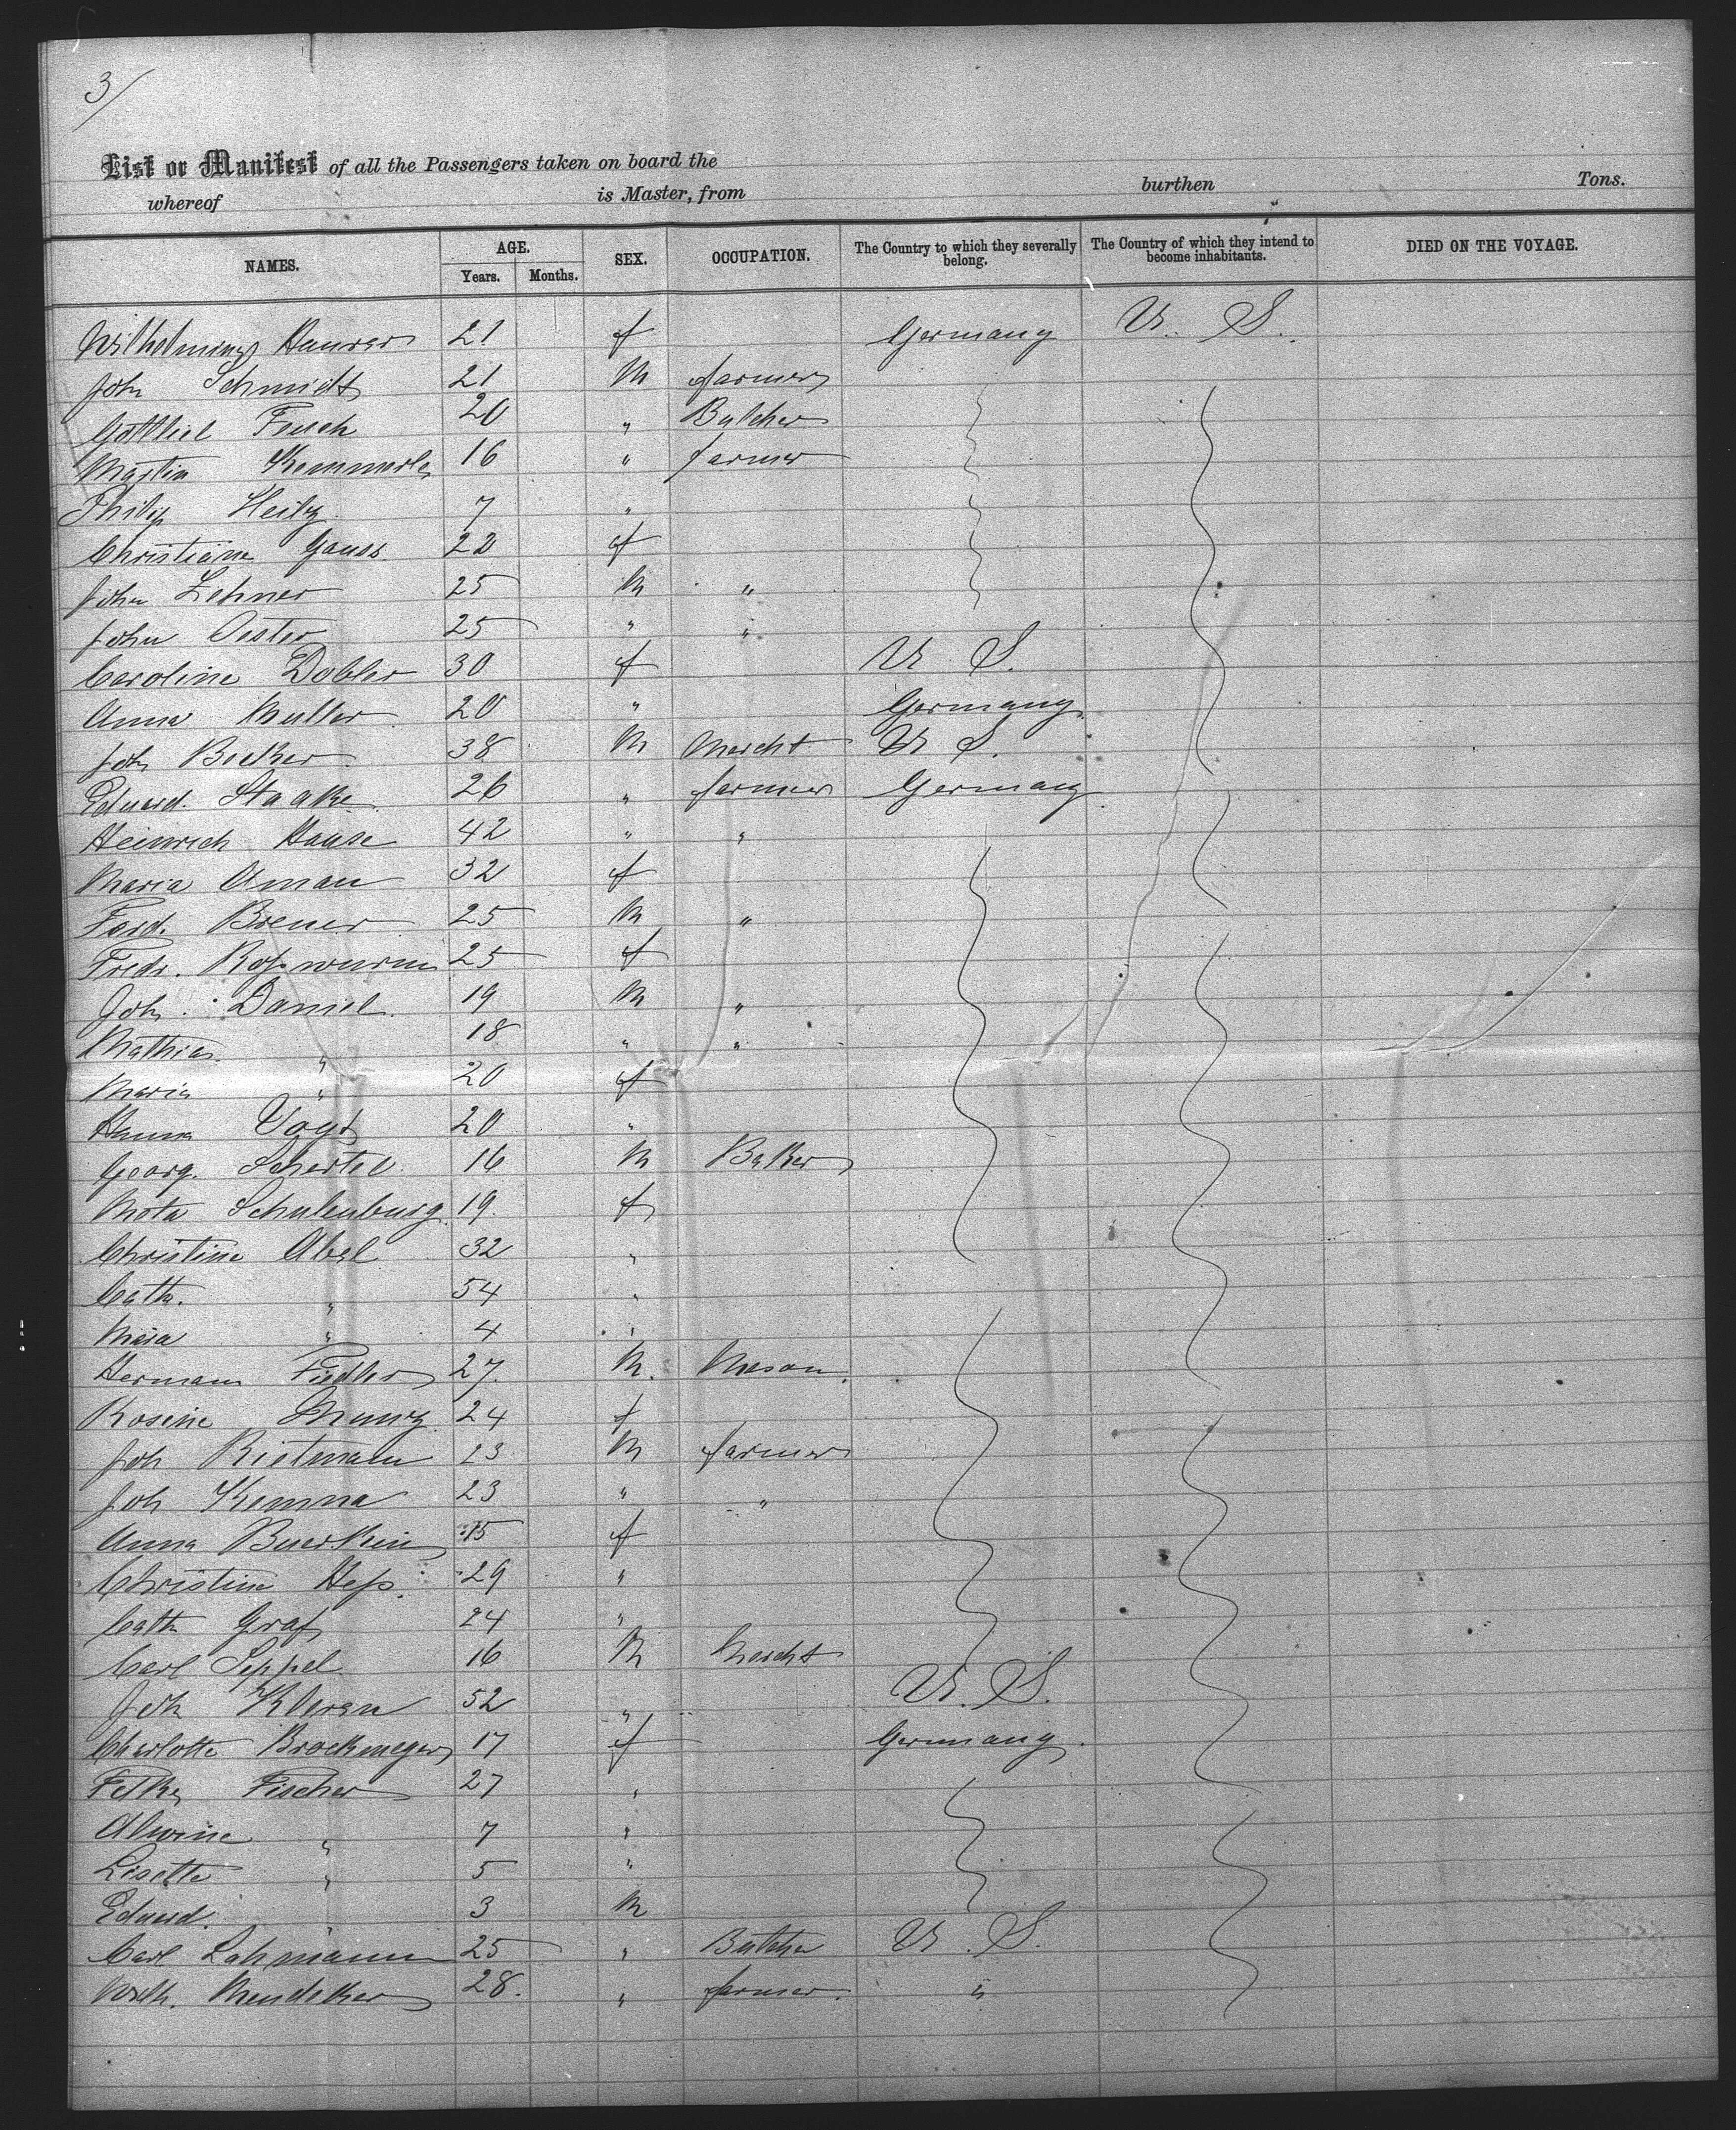 3/
List or Manifest of all the Passengers taken on board the
whereof is Master, from burthen Tons.
NAMES. AGE. Years. Months. SEX. OCCUPATION. The Country to which they severally belong. The Country of which they intend to become inhabitants. DIED ON THE VOYAGE.
Wilhelmine 21 f Germany U. S.
John Schmidt 21 M farmer
Gottlieb 20 " Butcher
Martin Kemmerle 16 " farmer
Philip Heily 7 "
Christiane Gauss 22 f
John Lehner 25 M "
John Oester 25 " "
Caroline Dobler 30 f U S.
Anna Muller 20 " Germany
Joh Becker 38 M Mercht U S.
Eduard. Staake 26 " farmer Germany
Heinrich Hause 42 " "
Maria Aman 32 f
Ferd. Brener 25 M "
Fredr. Roßwurm 25 f
Joh. Daniel 19 M "
Mathias " 18 " "
Maria " 20 f
Hanna Vogt 20 "
Georg. Schertel 16 M Baker
Meta Schulenburg 19. f
Christine Abel 32 "
Cath. " 54 "
Maria " 4 "
Hermann Fiedler 27. M. Mason.
Rosine 24 f
Joh Rietmann 23 M farmer
Joh Kemna 23 " "
Anna 15 f
Christine Heß. 29 "
Cath Graf 24 "
Carl Seppel 16 M Mercht
Joh 52 " U. S.
Charlotte Brockmeyer 17 f Germany.
Fischer 27 "
Alwine " 7 "
Lisette " 5 "
Eduard. " 3 M
Carl Lahmann 25 " Butcher U. S.
Wilh. Mendeker 28. " farmer. "